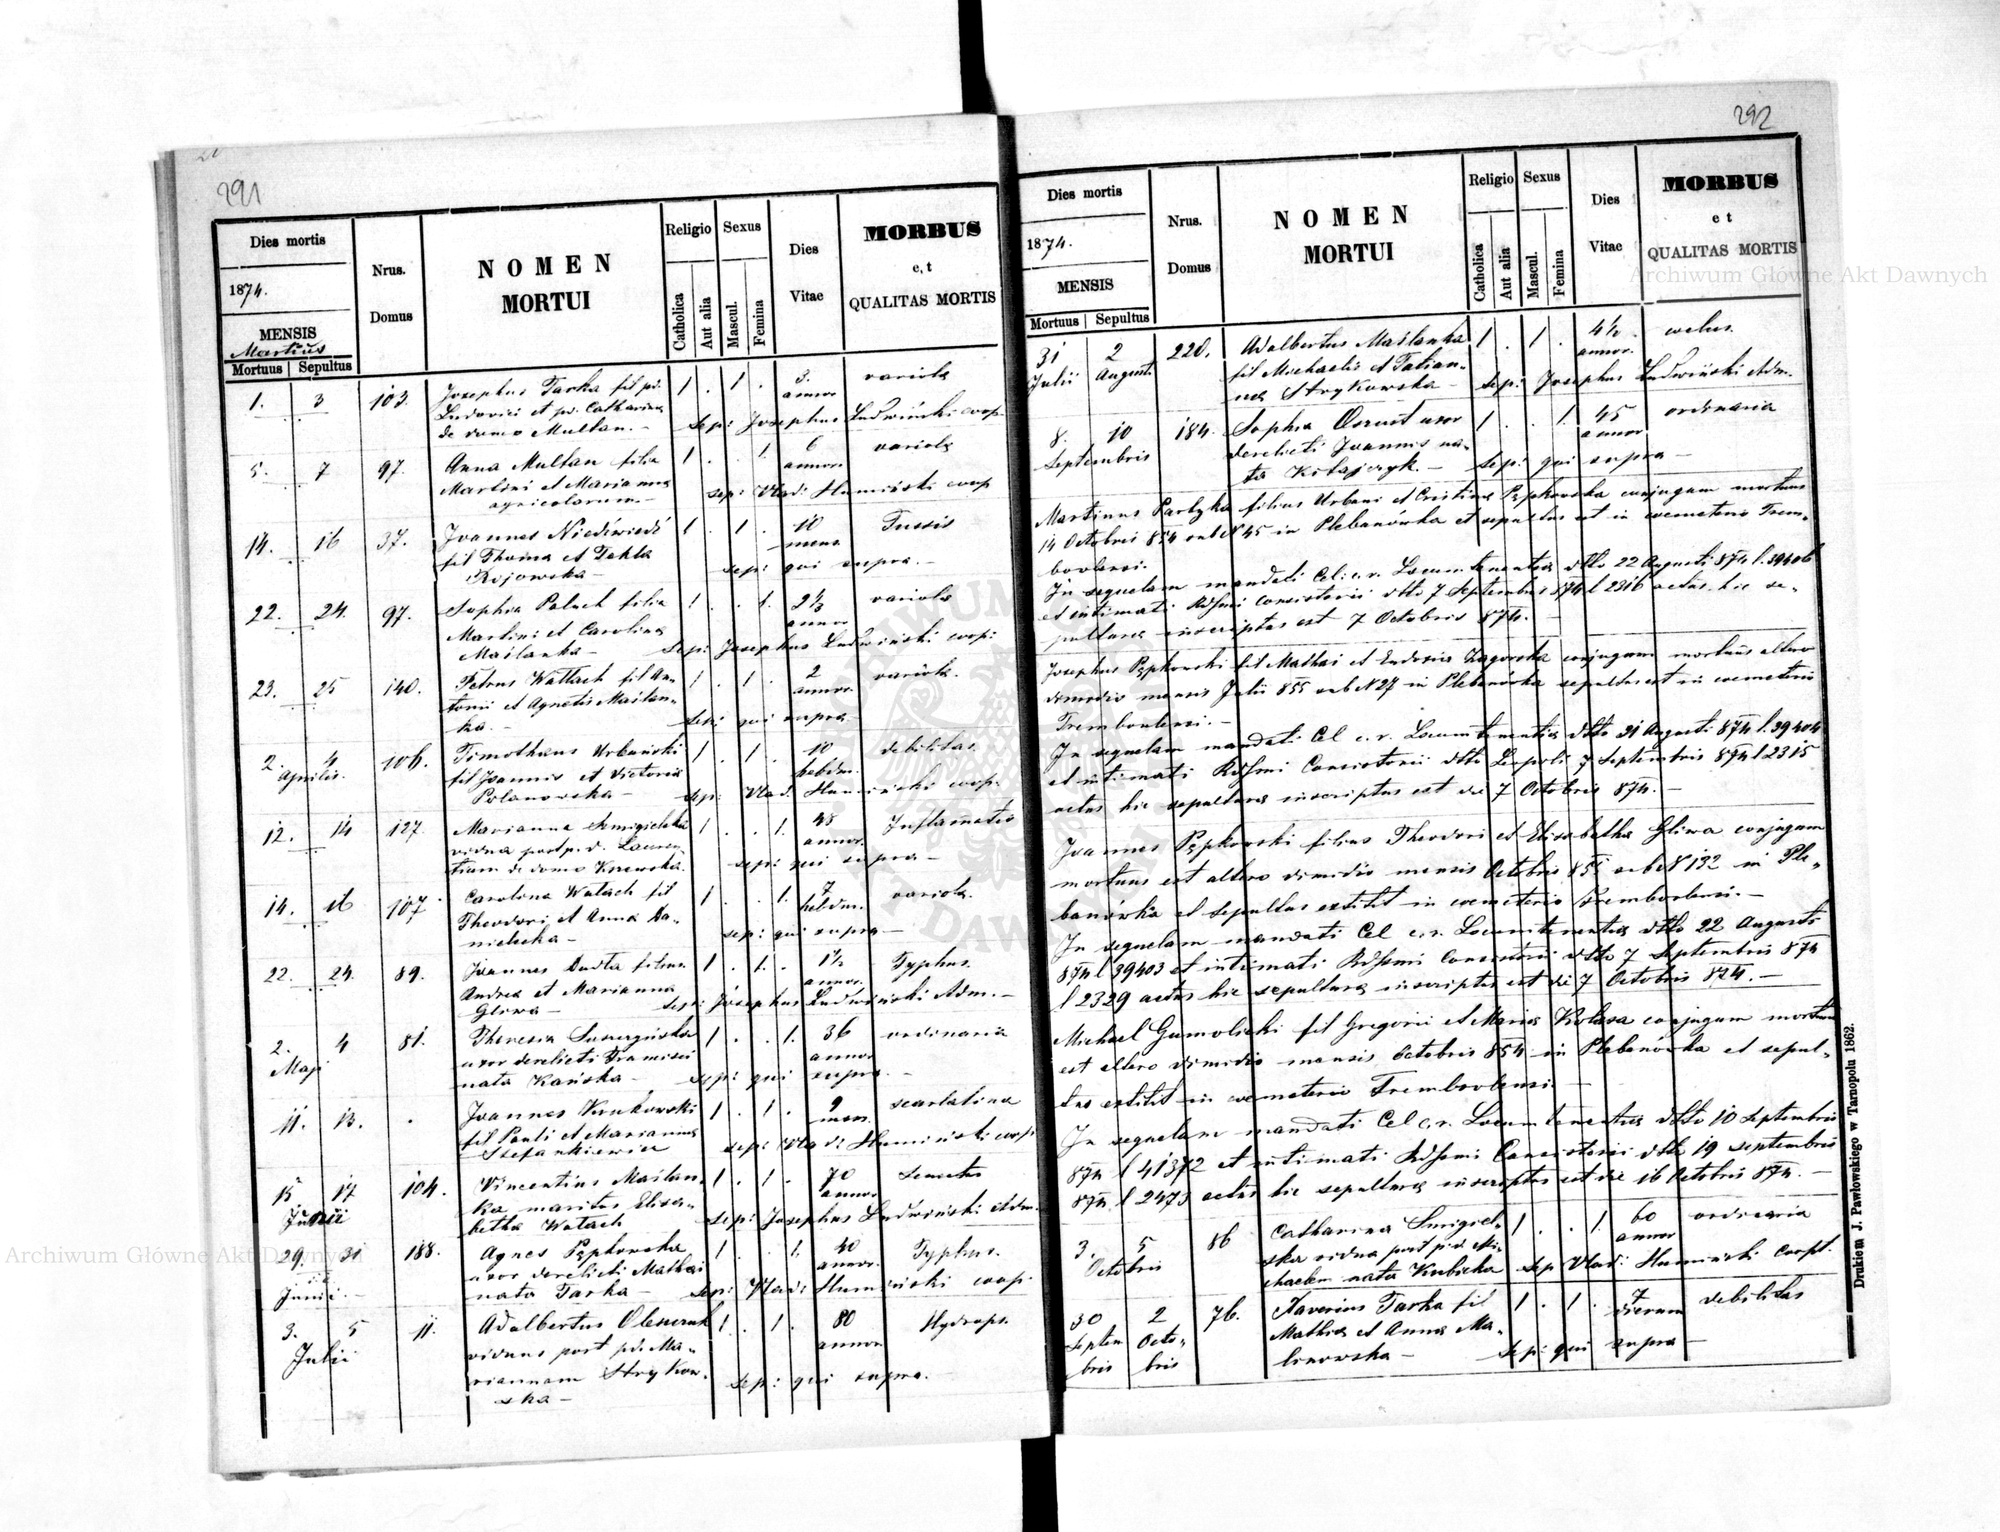 291
Dies mortis
1874.
MENSIS
Martius
Mortuus | Sepultus
Nrus.
Domus
NOMEN
MORTUI
Religio
Catholica
Aut alia
Sexus
Mascul.
Femina
Dies
Vitae
MORBUS
e,t
QUALITAS MORTIS
1. 3 103. Josephus Tarka fil pd. 1 . 1 . 3. variola
Ludovici et pd. Catharina annor
de domo Multan. — Sep: Josephus Ludwiński coop.
5. 7 97. Anna Multan filia 1 . . 1. 6 variola
Martini et Marianna annor.
agricolarum. — sep: Vlad: Humiński coop
14. 16 37. Joannes Niedźwiedź 1 . 1 . 10 Tussis
fil Thoma et Tekla mens.
Rojowska — sep: qui supra. —
22. 24. 97. Sophia Paluch filia 1 . . 1. 2 1/2 variola
Martini et Carolina annor
Maślanka — Sep: Josephus Ludwiński coop:
23. 25 140. Petrus Wattach fil An- 1 . 1 . 2 variola.
tonii et Agnetis Maślan- annor.
ka. — Sep: qui supra —
2. 4 106. Timotheus Urbański 1 . 1 . 10 debilitas.
Aprilis. fil Joannis et Victoria hebdm.
Polanowska — Sep: Vlad: Humiński coop.
12. 14 127. Marianna Smigielska 1 . . 1. 48 Inflamatio
vidua post p.d. Lauren- annor.
tium de domo — sep: qui supra —
14. 16 107 Carolina Watach fil 1 . . 1. 7 variola.
Theodori et Anna Da- hebdm.
nielicka — sep: qui supra —
22. 24. 89. Joannes Duda filius 1 . 1. . 1 1/2 Typhus.
Andrea et Marianna annor.
Gliwa — Sep: Josephus Ludwiński Adm. —
2. 4 81. Theresia 1 . . 1. 36 ordinaria
Maji uxor derelicti Francisci annor
nata Kańska — sep: qui supra. —
11. 13. . Joannes Krukowski 1 . 1 . 9 scarlatina
fil Pauli et Marianna mens.
Stefankiewicz sep: Vlad: Humiński coop:
15 17 104. Vincentius Maślan- 1 . 1 . 70 Senectus
Junii ka maritus Elisa- annor
betha Watach — Sep: Josephus Ludwiński Adm.
29. 31 188. Agnes Pępkowska 1 . . 1. 40 Typhus.
Junii uxor derelicti Mathaei annor.
nata Tarka — Sep: Vlad: Humiński coop.
3. 5 11. Adalbertus 1 . 1 . 80 Hydrops.
Julii viduus post pd. Ma- annor
riannam Strykow- sep: qui supra. —
ska —
292
Dies mortis
1874.
MENSIS
Mortuus | Sepultus
Nrus.
Domus
NOMEN
MORTUI
Religio
Catholica
Aut alia
Sexus
Mascul.
Femina
Dies
Vitae
MORBUS
et
QUALITAS MORTIS
31 2 220. Adalbertus Maślanka 1 . 1 . 4 1/2
Julii Augusti fil Michaelis et Tatian- annor.
na Strykowska — Sep: Josephus Ludwiński Adm.
8. 10 184. Sophia uxor 1 . . 1. 45 ordinaria
Septembris derelicti Joannis na- annor
ta Kitajczyk. — Sep: qui supra —
Martinus Partyka filius Urbani et Cristina Pępkowska conjugum mortuus
14 Octobris 854 sub N 45 in Plebanówka et sepultus est in coemeterio Trem-
bovlensi.
In sequelam mandati Cel: c.r. Locumtenentia dtto 22 Augusti 874 l. 39406
et intimati Rdssmi Consistorii dtto 7 Septembris 874 l 2316 actus hic se-
pultura inscriptus est 7 Octobris 874. —
Josephus Pępkowski fil Mathai et Eudoxia Zagorska conjugum mortuus altero
dimidio mensis Julii 855 sub N 27 in Plebanówka sepultus est in coemeterio
Trembovlensi. —
In sequelam mandati Cel c.r. Locumtenentia dtto 21 Augusti 874 l. 39404
et intimati Rdssmi Consistorii dtto Leopoli 7 Septembris 874 l 2315
actus hic sepultura inscriptus est die 7 Octobris 874. —
Joannes Pępkowski filius Theodori et Elisabetha Gliwa conjugum
mortuus est altero dimidio mensis Octobris 855 sub N 132 in Ple-
banówka et sepultus extitit in coemeterio Trembovlensi. —
In sequelam mandati Cel c.r. Locumtenentia dtto 22 Augusti
874 l 39403 et intimati Rdssmi Consistorii dtto 7 Septembris 874
l 2329 actus hic sepultura inscriptus est die 7 Octobris 874. —
Michael Gumolicki fil Gregorii et Maria Kolasa conjugum mortuus
est altero dimidio mensis Octobris 854 in Plebanówka et sepul-
tus extitit in coemeterio Trembovlensi. —
In sequelam mandati Cel c.r. Locumtenentia dtto 10 Septembris
874 l 41372 et intimati Rdssmi Consistorii dtto 19 Septembris
874 l 2473 actus hic sepultura inscriptus est die 16 Octobris 874. —
3. 5 86 Catharina Smigiel- 1 . . 1. 60 ordinaria
Octobris ska vidua post p.d. Mi- annor
chaelem nata Kubicka Sep Vlad: Humiński Coop.
30 2 76. Xaverius Tarka fil 1 . 1 . 7 debilitas
Septem Octo- Mathia et Anna Ma- dierum
bris bris linowska — Sep: qui supra —
Drukiem J. Pawłowskiego w Tarnopolu 1862.
Archiwum Główne Akt Dawnych
Archiwum Główne Akt Dawnych